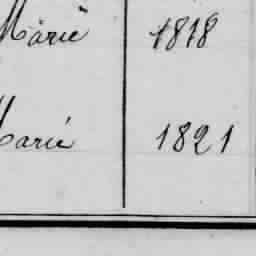 Marie 1818
Marie 1821